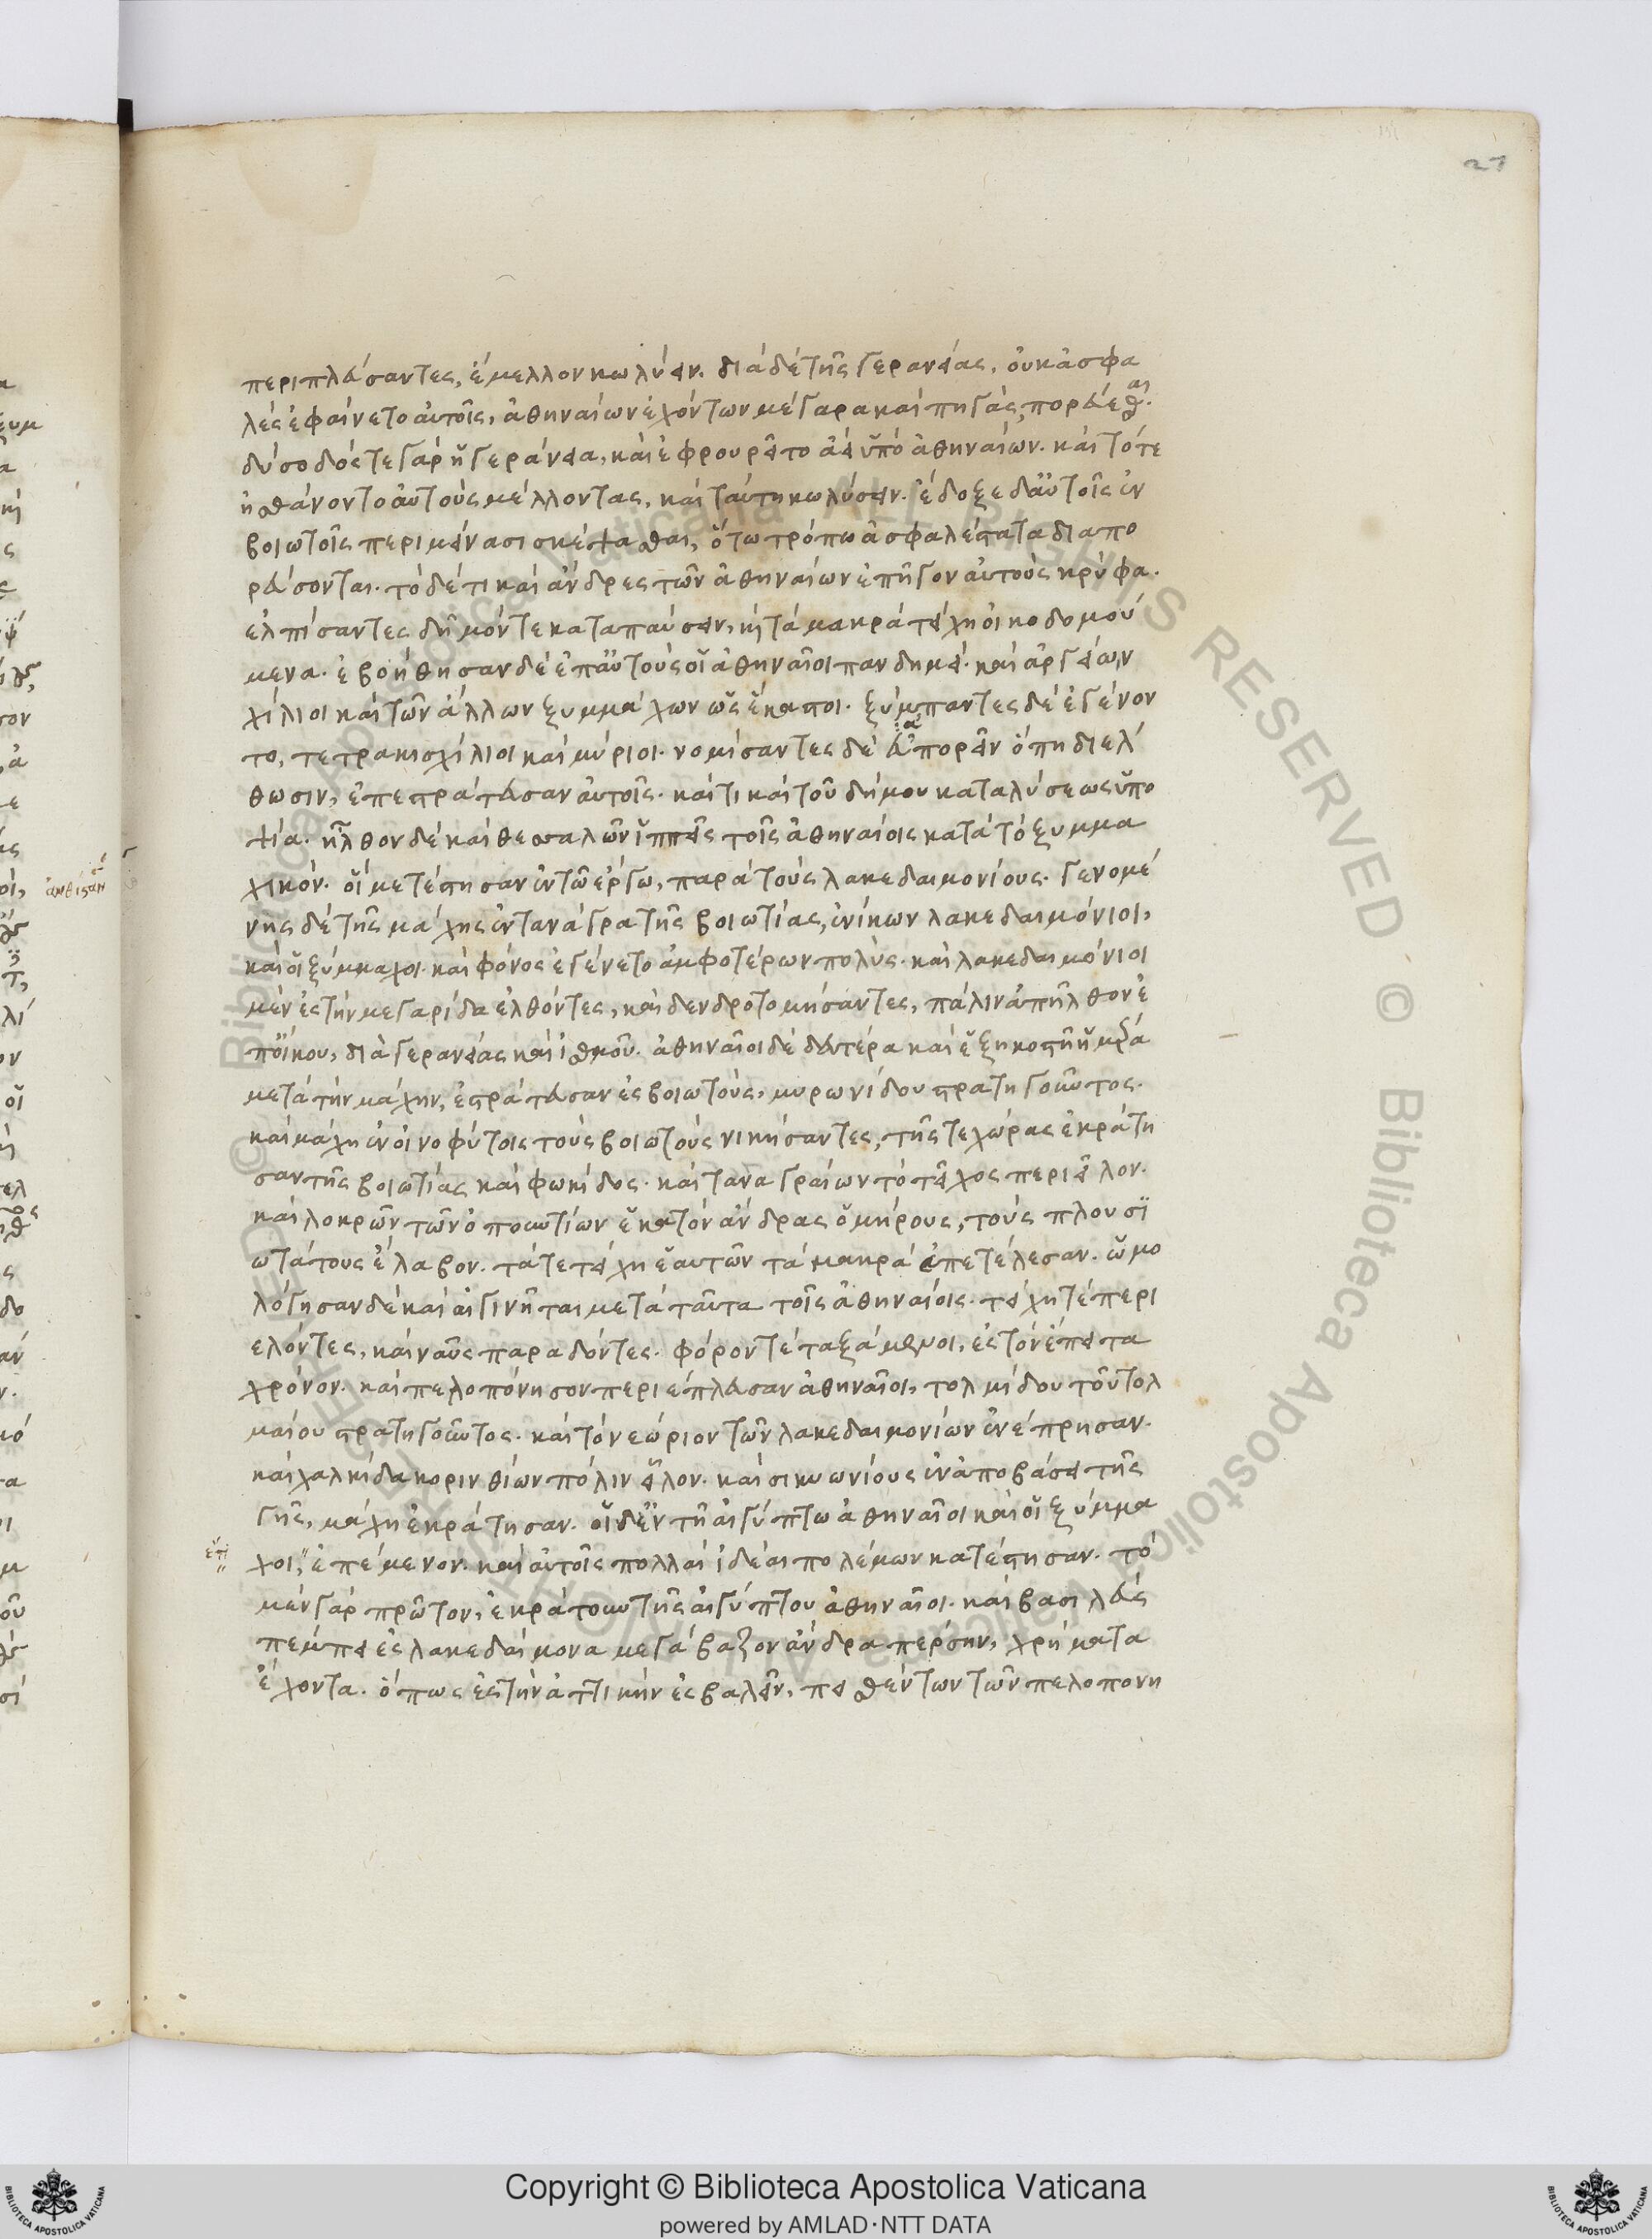 27
περιπλεύσαντες, ἔμελλον κωλύειν. διὰ δὲ τῆς γερανείας, οὐκ ἀσφα
λὲς ἐφαίνετο αὐτοῖς, ἀθηναίων ἐχόντων μέγαρα καὶ πηγάς, πορεύεσθαι.
δύσοδός τε γὰρ ἡ γεράνεια, καὶ ἐφρουρεῖτο ἀεὶ ὑπὸ ἀθηναίων. καὶ τότε
ἠσθάνοντο αὐτοὺς μέλλοντας, καὶ ταύτη κωλύσειν. ἔδοξε δ' αὐτοῖς ἐν
βοιωτοῖς περιμείνασι σκέψασθαι, ὅτω τρόπω ἀσφαλέστατα διαπο
ρεύσονται. τὸ δέ τι καὶ ἄνδρες τῶν ἀθηναίων ἐπῆγον αὐτοὺς κρύφα.
ἐλπίσαντες δῆμόν τε καταπαύσειν, καὶ τὰ μακρὰ τείχη οἰκοδομού
μενα. ἐβοήθησαν δὲ ἐπ' αὐτοὺς οἱ ἀθηναῖοι πανδημεί. καὶ ἀργείων
χίλιοι καὶ τῶν ἄλλων ξυμμάχων ὡς ἕκαστοι. ξύμπαντες δὲ ἐγένον
το, τετρακισχίλιοι καὶ μύριοι. νομίσαντες δὲ ἀπορεῖν ὅπη διέλ
θωσιν, ἐπεστράτευσαν αὐτοῖς. καί τι καὶ τοῦ δήμου καταλύσεως ὑπο
ψία. ἦλθον δὲ καὶ θεσσαλῶν ἱππεῖς τοῖς ἀθηναίοις κατὰ τὸ ξυμμα
χικόν. οἳ μετέστησαν ἐν τῶ ἔργω, παρὰ τοὺς λακεδαιμονίους. γενομέ
νης δὲ τῆς μάχης ἐν τανάγρα τῆς βοιωτίας, ἐνίκων λακεδαιμόνιοι,
καὶ οἱ ξύμμαχοι. καὶ φόνος ἐγένετο ἀμφοτέρων πολύς. καὶ λακεδαιμόνιοι
μὲν ἐς τὴν μεγαρίδα ἐλθόντες, καὶ δενδροτομήσαντες, πάλιν ἀπῆλθον ἐ
π' οἴκου, διὰ γερανείας καὶ ἰσθμοῦ. ἀθηναῖοι δὲ δευτέρα καὶ ἑξηκοστῆ ἡμέρα
μετὰ τὴν μάχην, ἐστράτευσαν ἐς βοιωτούς, μυρωνίδου στρατηγοῦντος.
καὶ μάχη ἐν οἰνοφύτοις τοὺς βοιωτοὺς νικήσαντες, τῆς τε χώρας ἐκράτη
σαν τῆς βοιωτίας καὶ φωκίδος. καὶ ταναγραίων τὸ τεῖχος περιεῖλον.
καὶ λοκρῶν τῶν ὀπουντίων ἑκατὸν ἄνδρας ὁμήρους, τοὺς πλουσι
ωτάτους ἔλαβον. τά τε τείχη ἑαυτῶν τὰ μακρὰ ἐπετέλεσαν. ὡμο
λόγησαν δὲ καὶ αἰγινῆται μετὰ ταῦτα τοῖς ἀθηναίοις. τείχη τέ περι
ελόντες, καὶ ναῦς παραδόντες. φόρον τὲ ταξάμενοι, ἐς τὸν ἔπειτα
χρόνον. καὶ πελοπόνησον περιέπλευσαν ἀθηναῖοι, τολμίδου τοῦ τολ
μαίου στρατηγοῦντος. καὶ τὸ νεώριον τῶν λακεδαιμονίων ἐνέπρησαν.
καὶ χαλκίδα κορινθίων πόλιν εἷλον. καὶ σικυωνίους ἐν ἀποβάσει τῆς
γῆς, μάχη ἐκράτησαν. οἱ δ' ἐν τῆ αἰγύπτω ἀθηναῖοι καὶ οἱ ξύμμα
ἔτι
χοι, ἐπέμενον. καὶ αὐτοῖς πολλαὶ ἰδέαι πολέμων κατέστησαν. τὸ
μὲν γὰρ πρῶτον, ἐκράτουν τῆς αἰγύπτου ἀθηναῖοι. καὶ βασιλεὺς
πέμπει ἐς λακεδαίμονα μεγάβαζον ἄνδρα πέρσην, χρήματα
ἔχοντα. ὅπως ἐς τὴν ἀττικὴν ἐσβαλεῖν, πεισθέντων τῶν πελοπονη
Copyright © Biblioteca Apostolica Vaticana
powered by AMLAD·NTT DATA